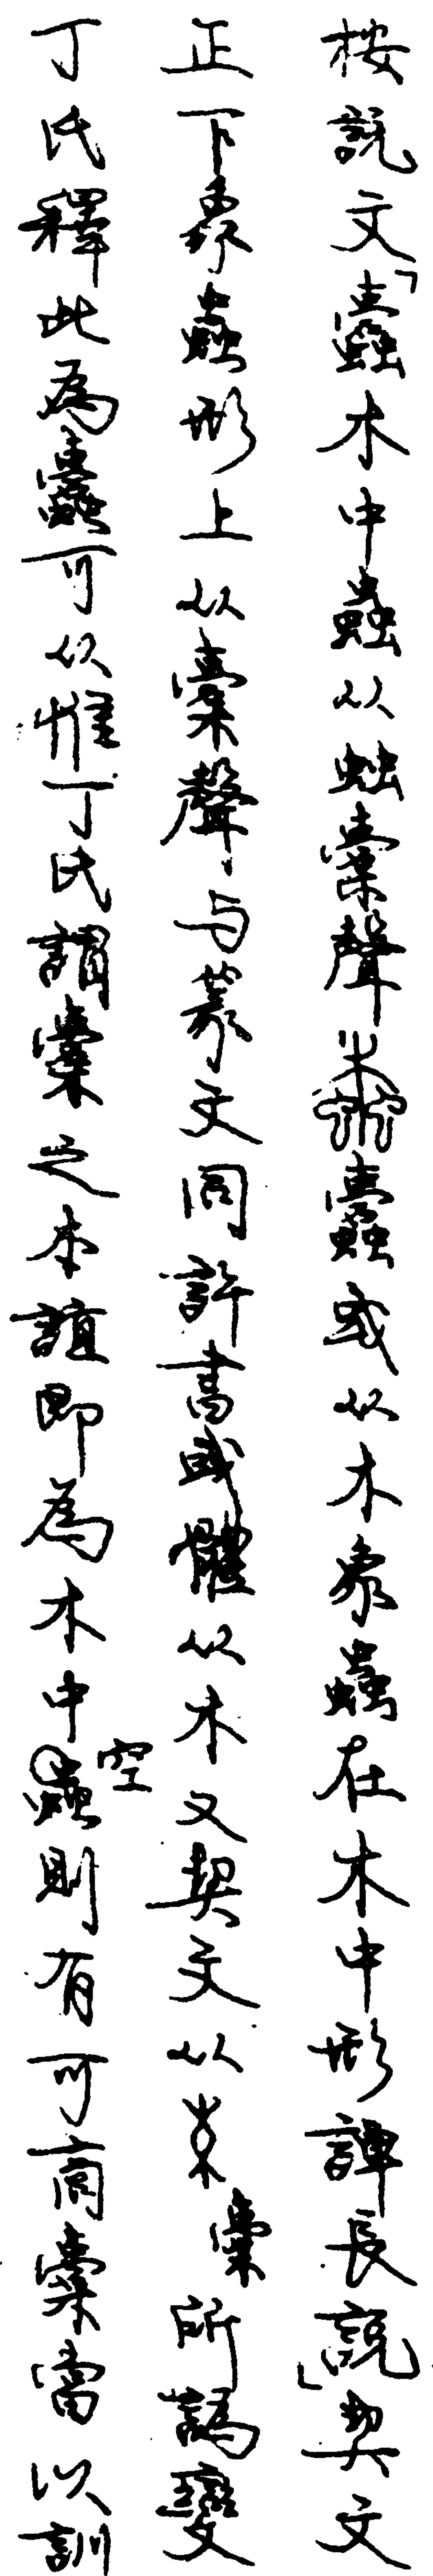 按說文「蠹木中蟲从䖵橐聲螙蠹或从木象蟲在木中形譚長說」契文
正下象蟲形上从橐聲与篆文同許書或體从木又契文从橐所譌變
丁氏釋此為蠹可从惟丁氏謂橐之本誼即為木中空蟲則有可商橐當以訓